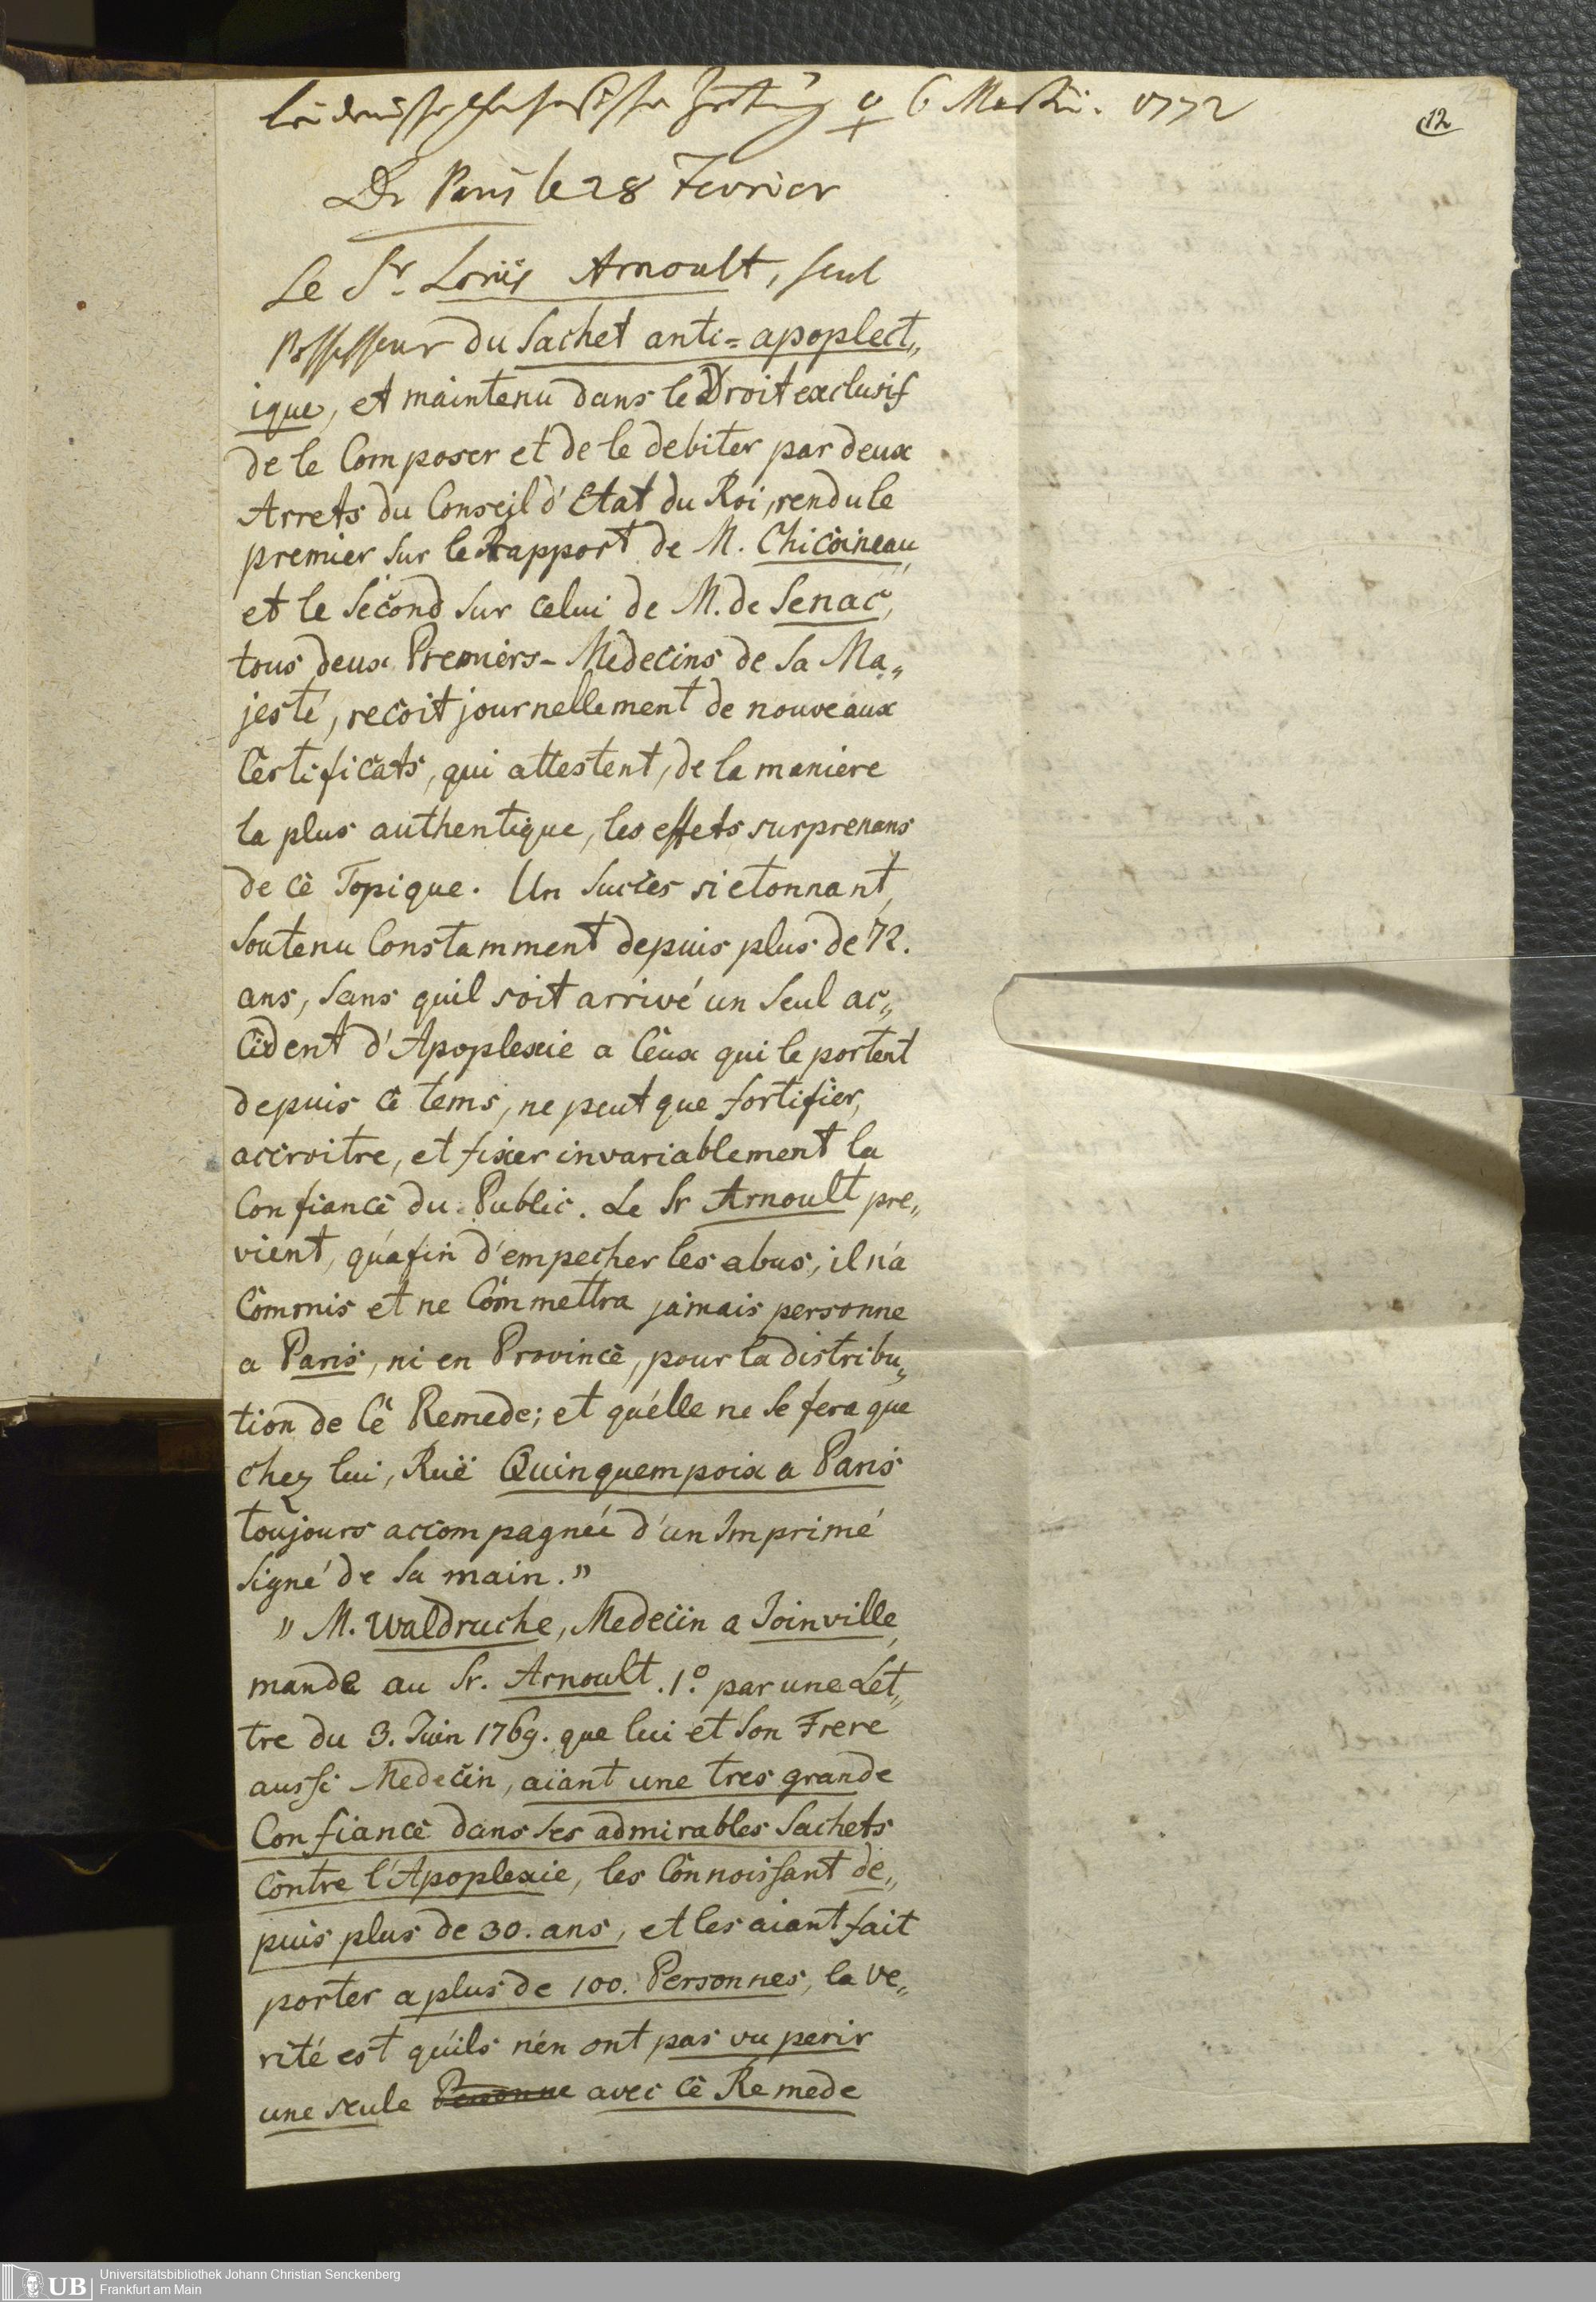 Leidensche französische Zeitung ♀ 6 Martii. 1772
12
De Paris le 28 Fevrier
Le Sr. Louis Arnoult, seul
Possesseur du Sachet anti=apoplect„
ique, et maintenu dans le Droit exclusif
de le Composer et de le debiter par deux
Arrets du Conseil d'Etat du Roi, rendu le
premier sur le Rapport de M. Chicoineau,
et le Second sur celui de M. de Senac,
tous deux Premiers-Medecins de Sa Ma„
jesté, recoit journellement de nouveaux
Certificats, qui attestent, de la maniere
la plus authentique, les effets surprenans
de ce Topique. Un Succes si etonnant,
Soutenu Constamment depuis plus de 72.
ans, Sans quil soit arrivé un Seul ac„
cident d'Apoplexie a Ceux qui le portent
depuis ce tems, ne peut que fortifier,
accroitre, et fixer invariablement la
Confiance du Public. Le Sr Arnoult pre„
vient, qu'afin d'empecher les abus, il n'a
Commis et ne Commettra jamais personne
a Paris, ni en Province, pour la distribu„
tion de Ce Remede; et qu'elle ne se fera que
chez lui, Ruë Quinquempoix a Paris
toujours accompagnée d'un Imprimé
Signé de Sa main."
" M. Waldruche, Medecin a Joinville,
mande au Sr. Arnoult. 1.° par une Let„
tre du 3. Juin 1769. que lui et Son Frere
aussi Medecin, aïant une tres grande
Confiance dans ses admirables Sachets
Contre l'Apoplexie, les Connoissant de„
puis plus de 30. ans, et les aiant fait
porter a plus de 100. Personnes, la ve„
rité est qu'ils n'en ont pas vu perir
une seule Personne avec ce Remede
UB
Universitätsbibliothek Johann Christian Senckenberg
Frankfurt am Main